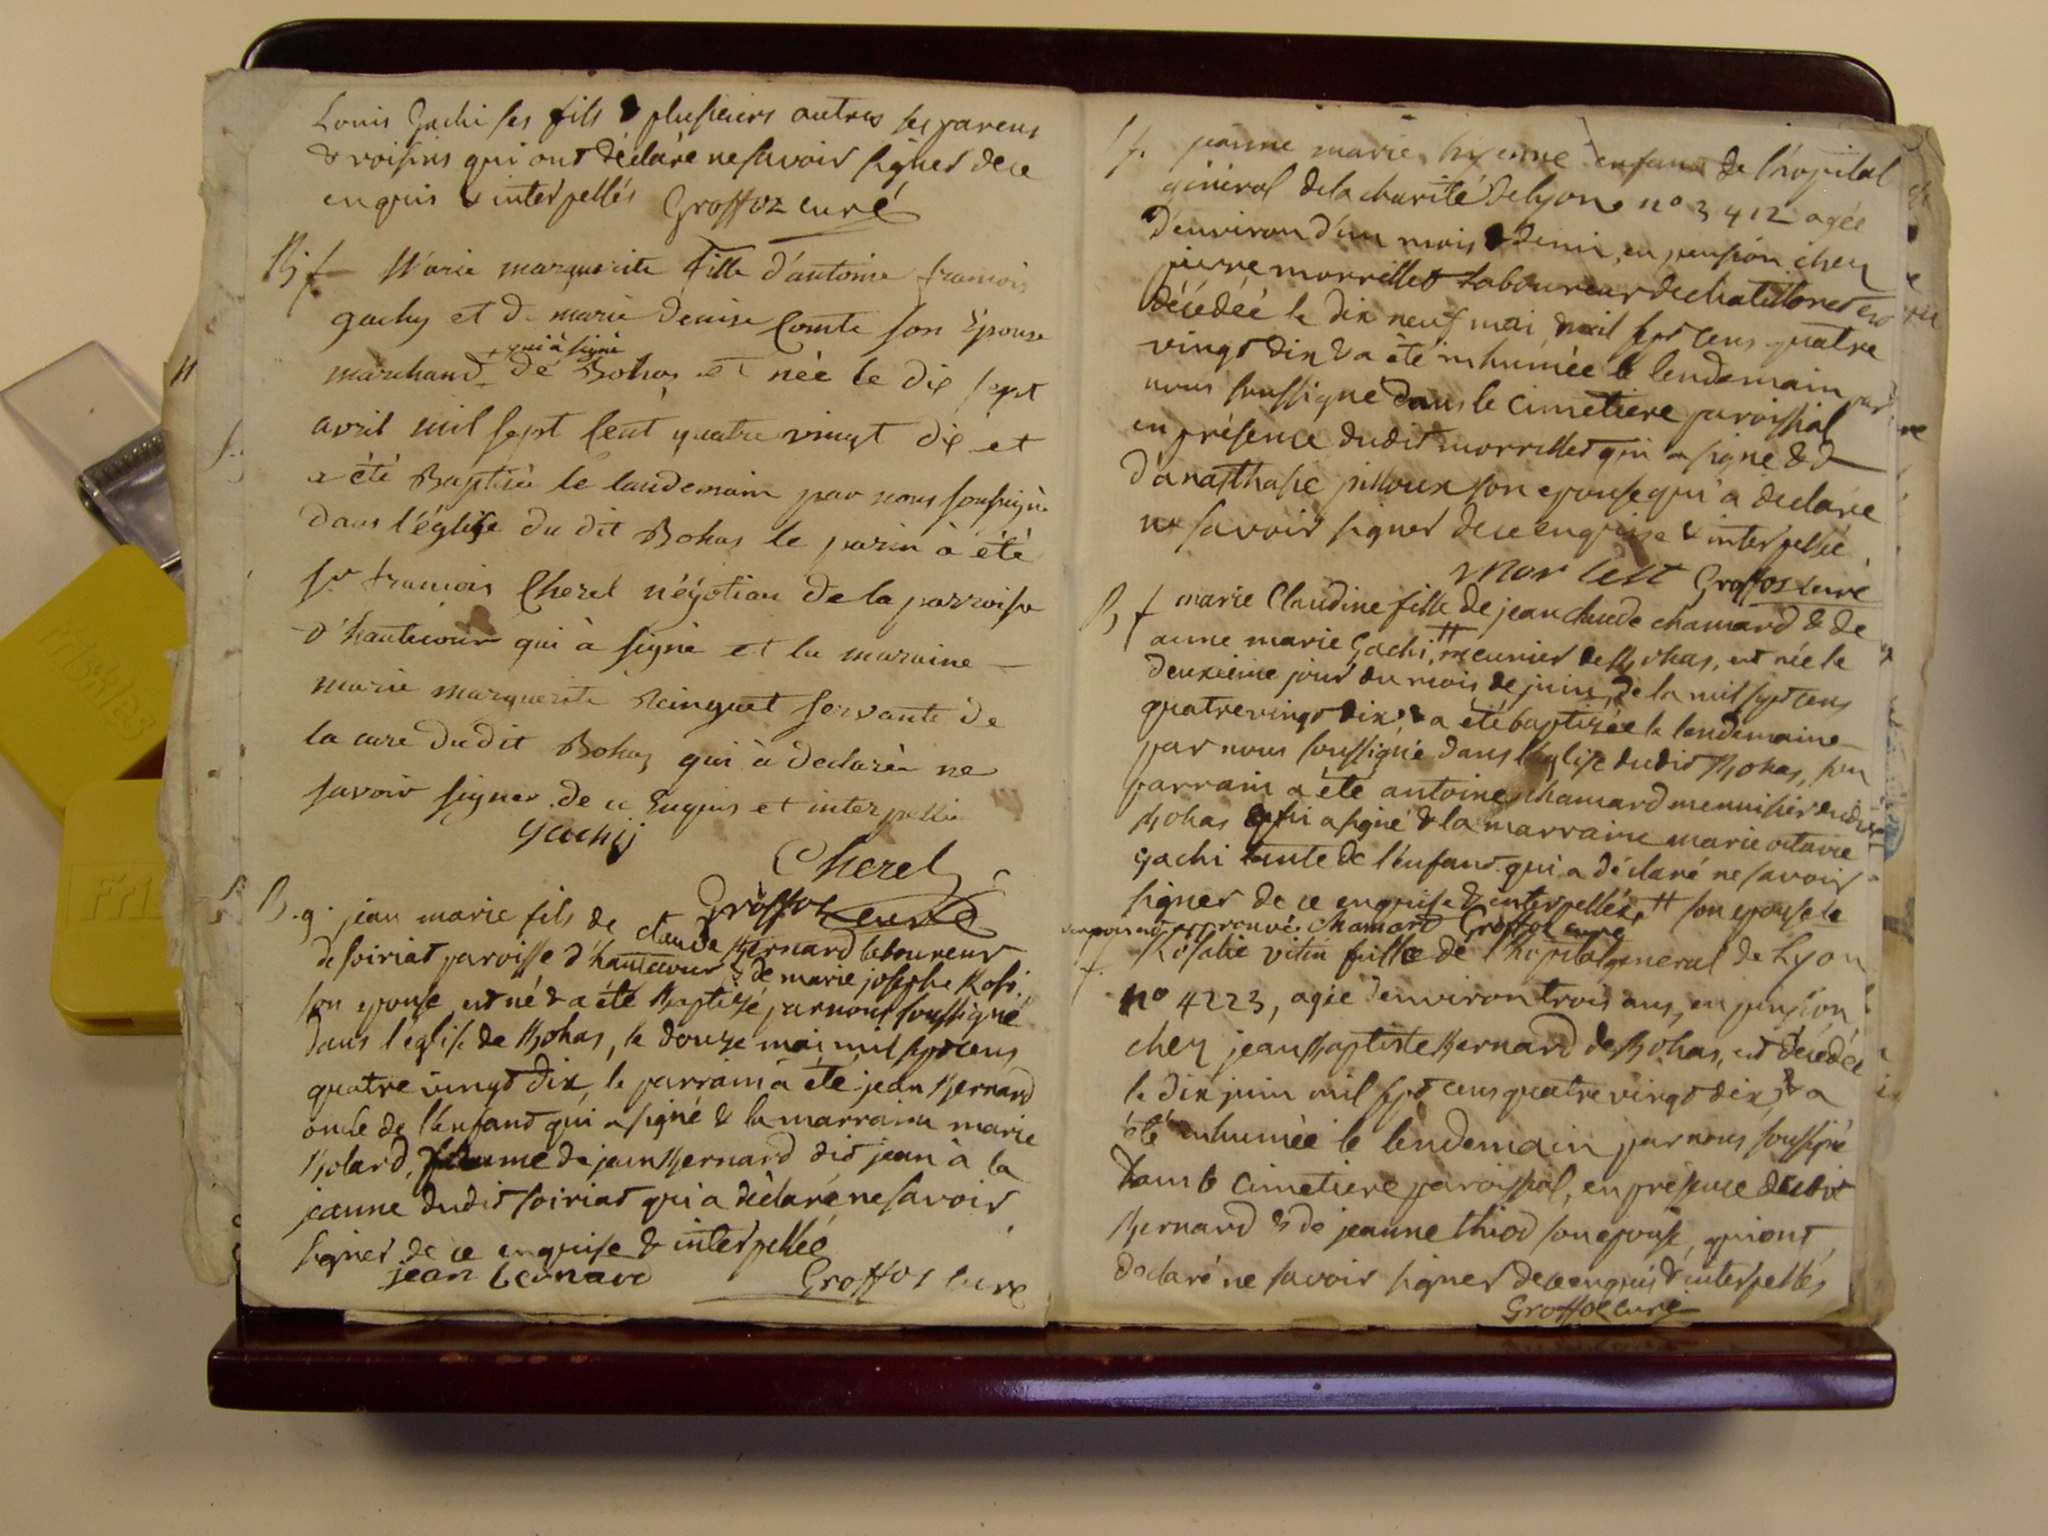 Louis Gachi ses fils & plusieurs autres ses parens
& voisins qui ont déclaré ne savoir signer de ce
enquis & interpellés Groffoz curé
B f Marie marguerite Fille d'antoine francois
gachy et de marie denise Comte son Epouse
qui à signé
marchand de Bohas et née le dix sept
avril mil sept Cent quatre vingt dix et
a été Baptisée le landemain par nous soussigné
dans l'église du dit Bohas le parin à été
Sr francois Cherel négotian de la parroisse
d'hautecour qui à signé et la maraine
marie marguerite Reinguet servante de
la cure dudit Bohas qui à declarée ne
savoir signer de ce Enquis et interpellée
gachij
Cherel
Groffoz curé
B. g. jean marie fils de claude Bernard laboureur
de soiriat paroisse d'hautecour & de marie josephe
son epouse est né & a été Baptizé par nous soussigné
dans l'église de Bohas, le douze mai mil sept cens
quatre vingt dix, le parrain a été jean Bernard
oncle de l'enfant qui a signé & la marraine marie
Bolard, femme de jean Bernard dit jean à la
jeanne dudit soiriat qui a déclaré ne savoir
signer de ce enquise & interpellée
jean bernard Groffoz curé
S f. jeanne marie enfant de l'hopital
général de la charité de lyon no 3412 agée
d'environ d'un mois & demi, en pension chez
pierre morrillet laboureur de chatillonet est
décédée le dix neuf mai mil sept cens quatre
vingt dix & a été inhumée le lendemain par
nous soussigné dans le cimetiere paroissial
en présence dudit morrillet qui a signé & d
d'anasthasie pilloux son epouse qui a declaré
ne savoir signer de ce enquise & interpellée
Groffoz curé
B f marie Claudine fille de jean claude chamard & de
anne marie Gachi, # meunier de Bohas, est née le
deuxième jour du mois de juin, de la mil sept cens
quatre vingt dix & a été baptizée le lendemain
par nous soussigné dans l'église dudit Bohas, son
parrain a été antoine chamard menuisier dudit
Bohas qui a signé & la marraine marie octavie
gachi tante de l'enfant qui a déclaré ne savoir
signer de ce enquise & interpellée, # son epouse
approuvé. Chamard Groffoz curé
f. Rosalie vitin fille de l'hopital general de Lyon
no 4223, agée d'environ trois ans, en pension
chez jean Baptiste Bernard de Bohas, est décédée
le dix juin mil sept cens quatre vingt dix, & a
été inhumée le lendemain par nous soussigné
dans le cimetiere paroissial, en présence dudit
Bernard & de jeanne thiod son epouse, qui ont
declaré ne savoir signer de ce enquis & interpellés
Groffoz curé